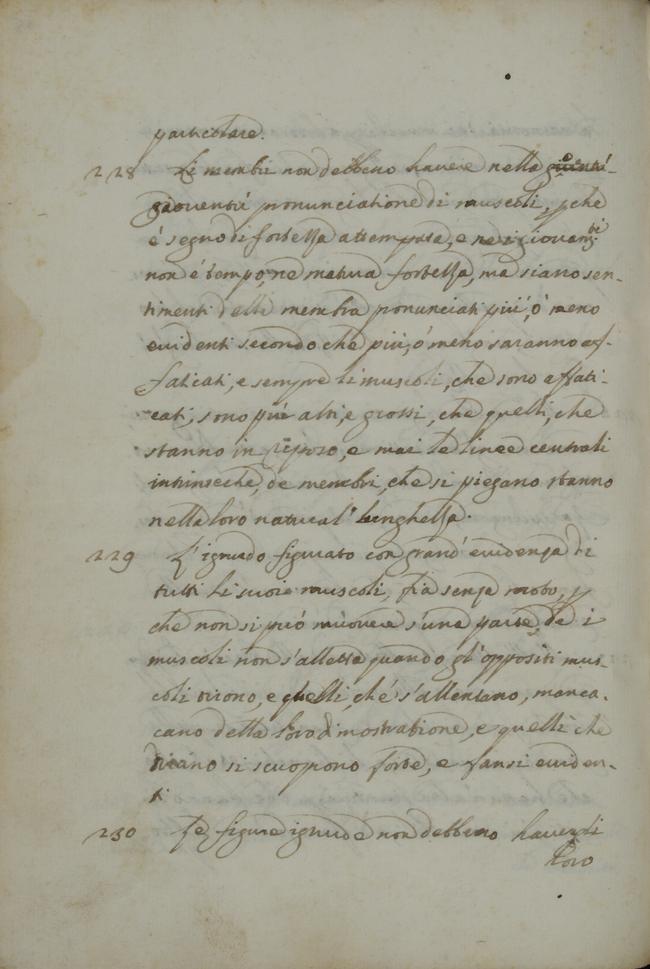 particolare.
228 Li membri non debbeno havere nella
gioventù pronunciatione di muscoli, p che
è segno di fortezza attempata, e ne i giovanetti
non è tempo, ne matura fortezza, ma siano sen-
timenti delli membra pronunciati più, ò meno
evidenti secondo che più, ò meno saranno af-
faticati, e sempre li muscoli, che sono affati-
cati, sono più alti, e grossi, che quelli, che
stanno in riposo, e mai le linee centrali
intrinseche, de membri, che si piegano stanno
nella loro natural' lunghezza.
229 L'ignudo figurato con grand' evidenza di
tutti li suoi muscoli, fia senza moto, p
che non si può muovere s'una parte de i
muscoli non s'alletta quando gl'oppositi mus-
coli tirono, e quelli, che s'allentano, manca-
cano della loro dimostratione, e quelli che
tirano si scuopono forte, e fansi eviden-
ti
230 Le figure ignude non debbeno haver li
loro